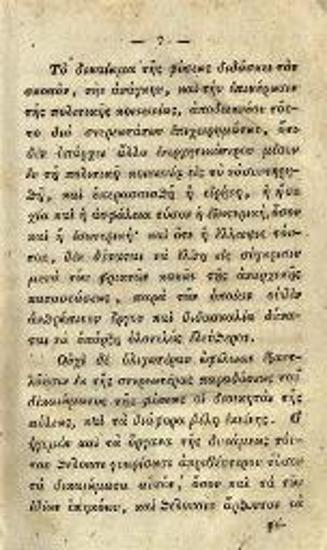 — 7 —
Τὸ δικαίωμα τῆς φύσεως διδάσκει τὸν
σκοπὸν, τὴν ἀνάγκην, καὶ τὴν ἐπικύρωσιν
τῆς πολιτικῆς κοινωνίας, ἀποδεικνύον τοῦ-
το διὰ στερρωτάτων ἐπιχειρημάτων, ὅτι
δὲν ὑπάρχει ἄλλο ἐνεργητικώτερον μέσον
ἐν τῇ πολιτικῇ κοινωνίᾳ εἰς τὸ νὰ συντηρη-
θῇ, καὶ ὑπερασπισθῇ ἡ εἰρήνη, ἡ ἡσυ-
χία καὶ ἡ ἀσφάλεια τόσον ἡ ἐξωτερικὴ, ὅσον
καὶ ἡ ἐσωτερική· καὶ ὅτι ἡ ἔλλειψις τού-
του, δὲν δύναται νὰ ἔλθῃ εἰς σύγκρισιν
μετὰ τῶν φρικτῶν κακῶν τῆς ἀναρχικῆς
καταστάσεως, παρὰ τῶν ὁποίων οὐδὲν
ἀνθρώπινον ἔργον καὶ διδασκαλία δύνα-
ται νὰ ὑπάρξῃ ὁλοτελῶς ἐλεύθερον.
Οὐχὶ δὲ ὀλιγωτέραν ὠφέλειαν
ἐκ τῆς στερρωτέρας παραδόσεως τοῦ
δικαιώματος τῆς φύσεως οἱ διοικηταὶ τῆς
πόλεως, καὶ τὰ διάφορα μέλη ἐκείνης. Ὁ
ἡγεμὼν καὶ τὰ ὄργανα τῆς δυνάμεως τού-
του θέλουσι γνωρίσει ἀκριβέστερον τόσον
τὰ δικαιώματα αὐτῶν, ὅσον καὶ τὰ τῶν
ἰδίων ὑπηκόων, καὶ θέλουσιν ἄρξωνται νὰ